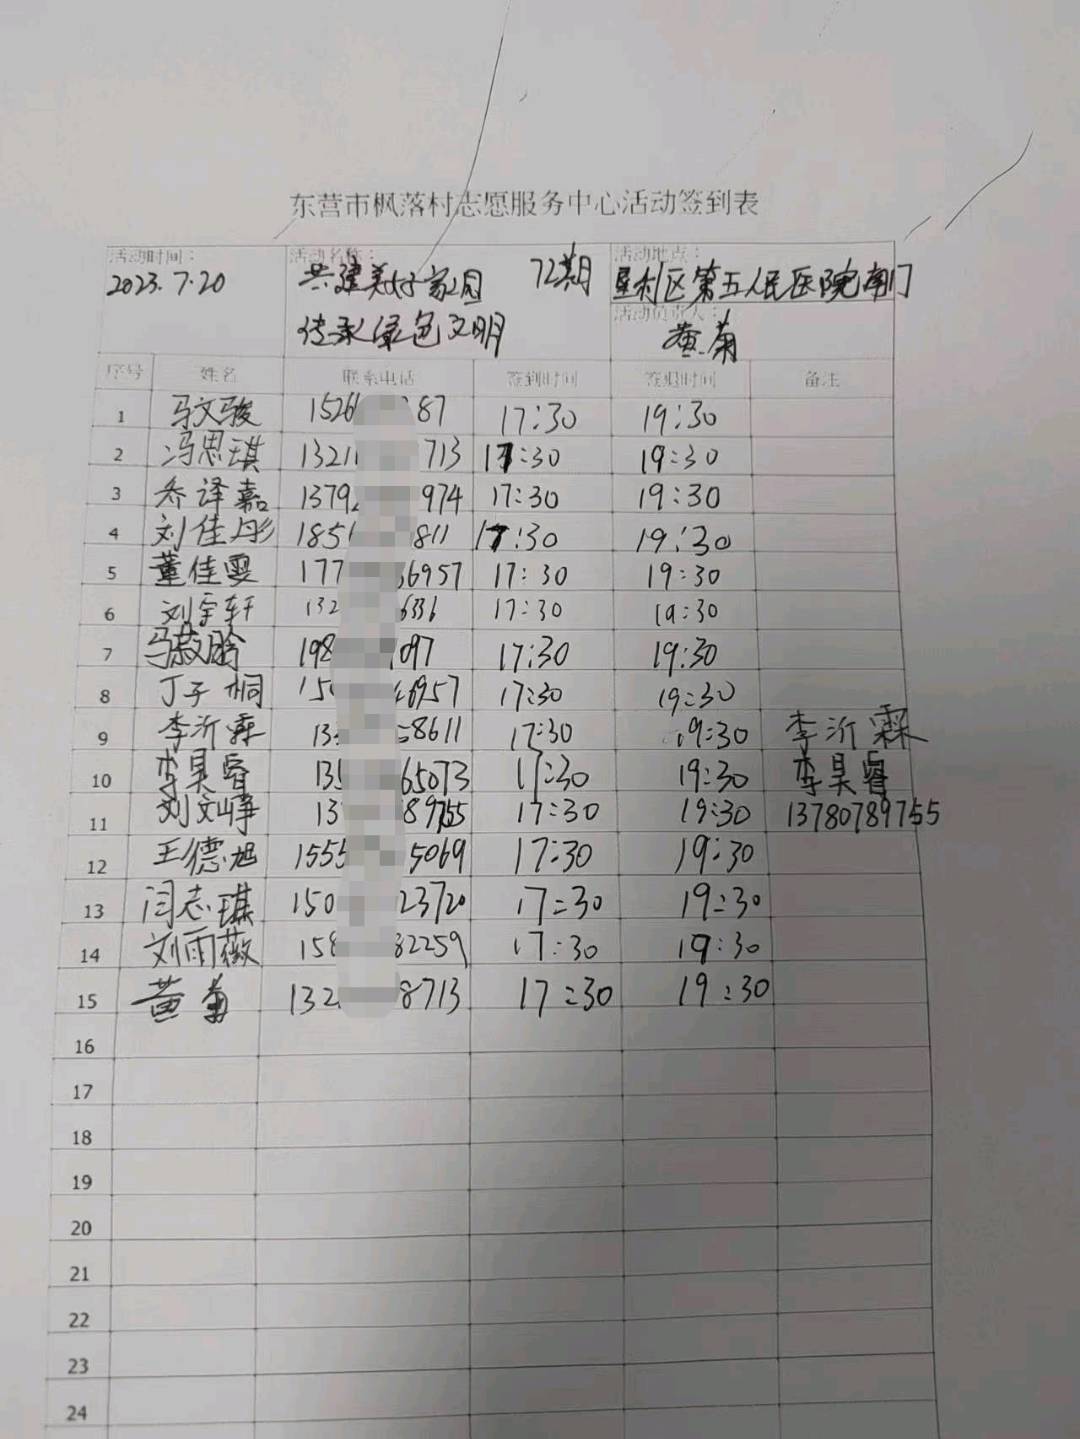 东营市枫落村志愿服务中心活动签到表
活动时间： 活动名称： 活动地点：
2023.7.20 共建美好家园 72期 垦利区第五人民医院南门
传承绿色文明 活动负责人： 黄菊
序号 姓名 联系电话 签到时间 签退时间 备注
1 马文骏 1526 87 17:30 19:30
2 冯思琪 1321 713 17:30 19:30
3 乔译嘉 1379 974 17:30 19:30
4 刘佳彤 185 811 17:30 19:30
5 董佳雯 177 6957 17:30 19:30
6 刘宇轩 132 6336 17:30 19:30
7 马 198 097 17:30 19:30
8 丁子桐 15 6957 17:30 19:30
9 李沂霖 13 8611 17:30 19:30 李沂霖
10 李昊睿 13 65073 17:30 19:30 李昊睿
11 刘文峥 13 89755 17:30 19:30 13780789755
12 王德旭 1555 5069 17:30 19:30
13 闫志琪 150 23720 17:30 19:30
14 刘雨薇 158 82259 17:30 19:30
15 黄菊 132 8713 17:30 19:30
16
17
18
19
20
21
22
23
24